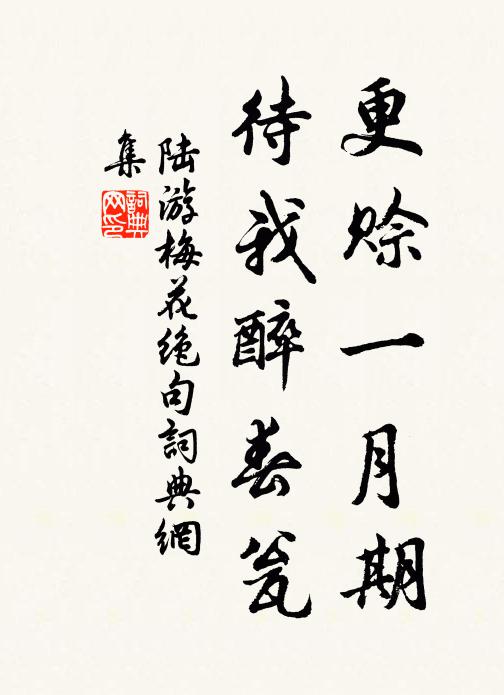 更赊一月期
待我醉春瓮
陆游梅花绝句詞典網
集
詞典
网印